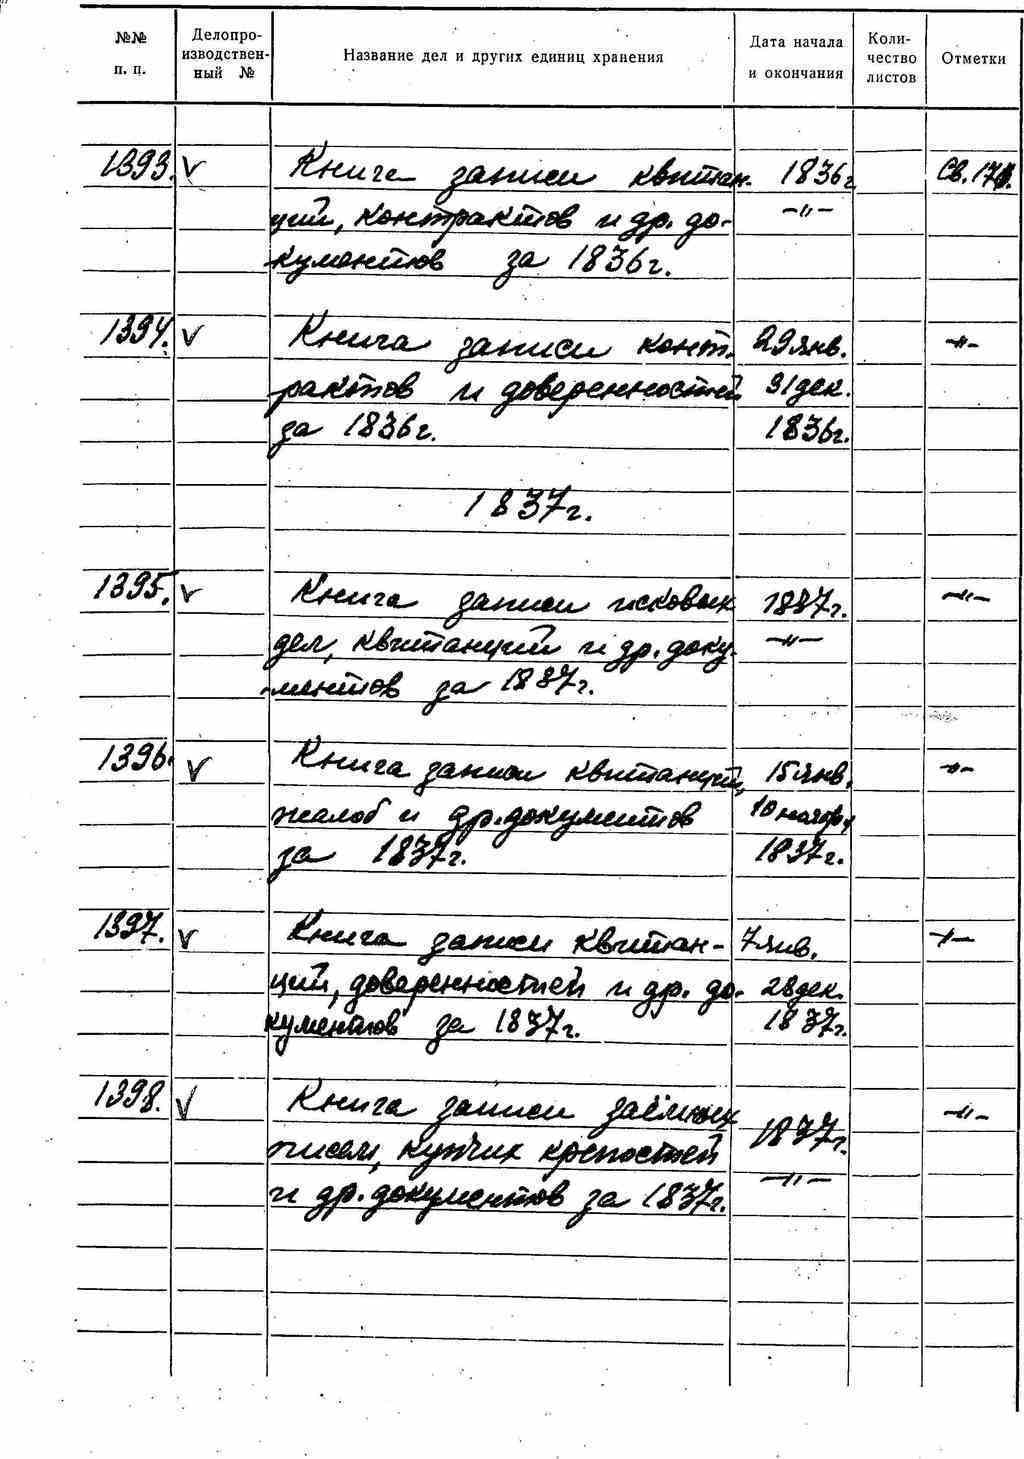 №№ п. п. Делопро-изводствен-ный № Название дел и других единиц хранения Дата начала и окончания Коли-чество листов Отметки
1393. V Книга записи квитан- 1836г Св.
ций, контрактов и др. до- —"—
кументов за 1836г.
1394. V Книга записи конт- 29 янв. —"—
рактов и доверенностей 31 дек.
за 1836г. 1836г.
1837г.
1395. V Книга записи исковых 1837г. —"—
дел, квитанций и др. доку- —"—
ментов за 1837г.
1396. V Книга записи квитанций, 15 янв. —"—
жалоб и др. документов 10 ноябр.
за 1837г. 1837г.
1397. V Книга записи квитан- 7 янв. —"—
ций, доверенностей и др. до- 28 дек.
кументов за 1837г. 1837г.
1398. V Книга записи заёмных 1837г. —"—
писем, купчих крепостей
и др. документов за 1837г. —"—